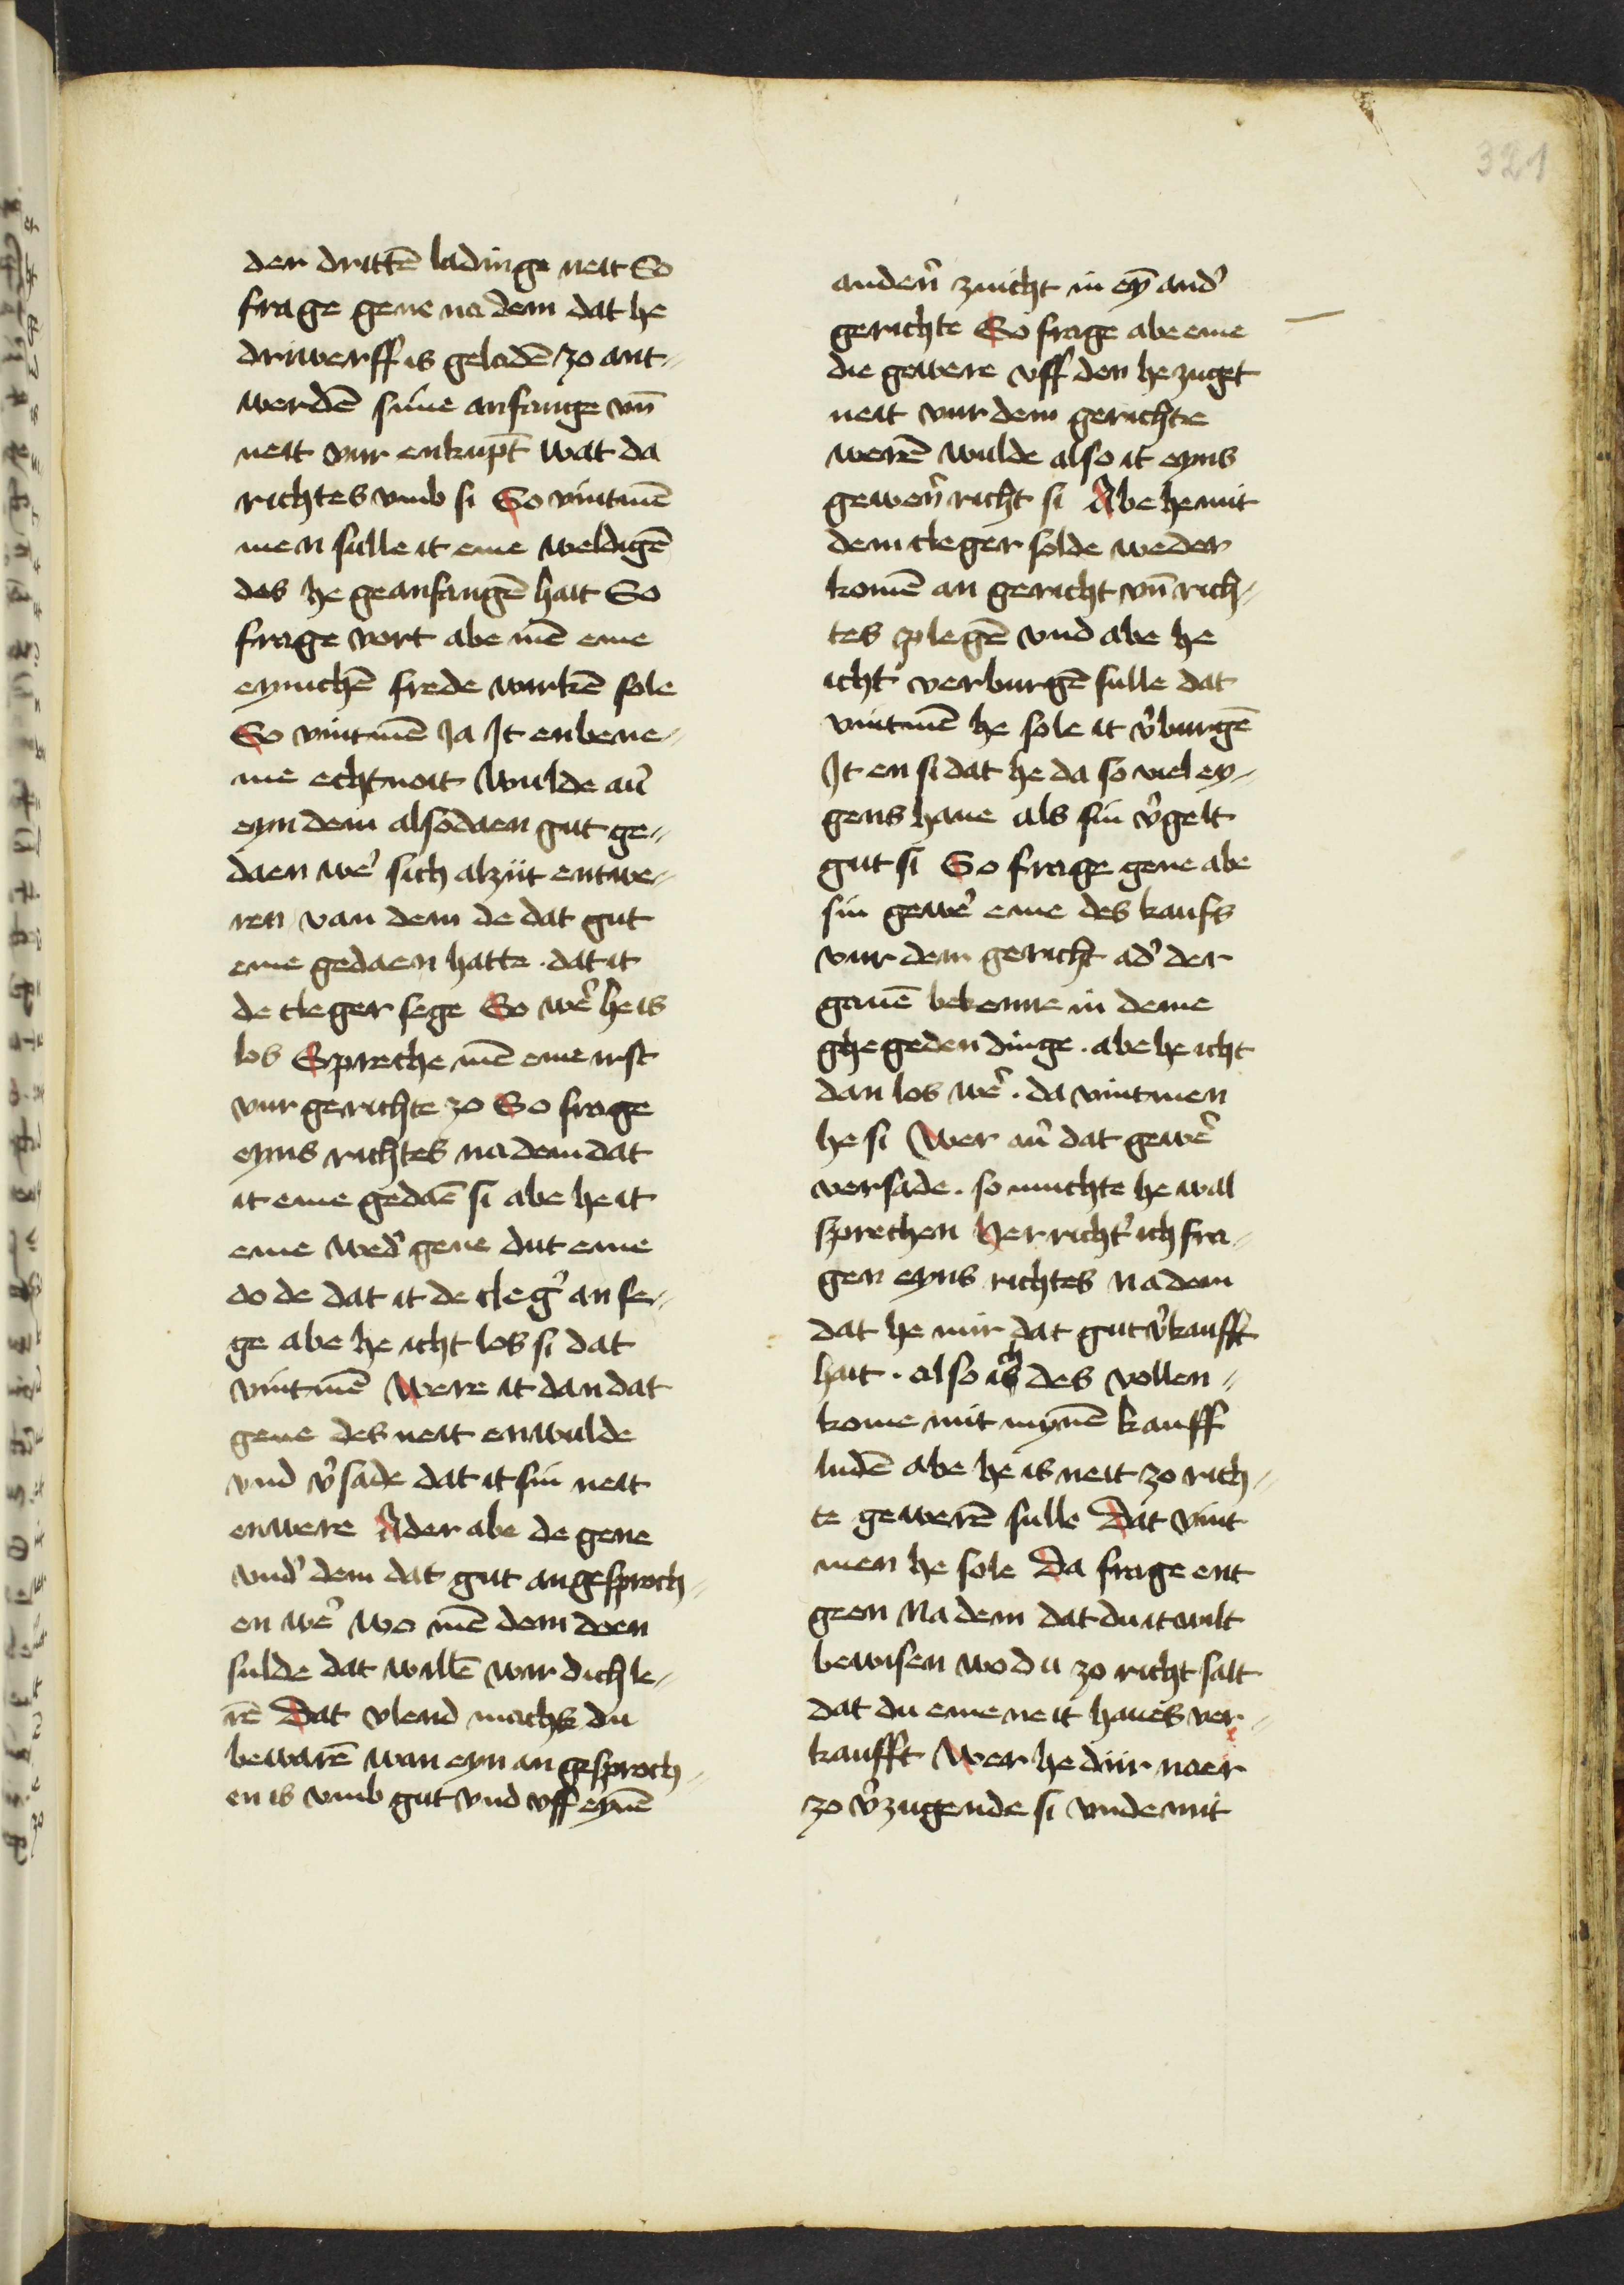 321
der drittē ladinge neit So
frage gene na dem dat he
driwerff is geladē zo ant-
werdē sime anfange vn̄
neit vur enkupt̄ wat da
richtes vmb si So vintmē
men sulle it eme weldigē
des he geanfangē hait So
frage vort abe mē eme
eynichē frede wirkē sole
So vintmē Ja It enbene-
me echt noit Wulde au̓
eyn dem alsodaen gut ge-
daen we̓ sich alziit entwe-
ren van dem de dat gut
eme gedaen hatte . dat it
de cleger sege So we̓ he is
los Spreche mē eme irst
vur gerichte zo So frage
eyns richtes na dem dat
it eme gedaē si abe he it
eme wed̓ gene dut eme
do de dat it de cleg̓ an se-
ge abe he icht los si dat
vintmē Were it dan dat
gene des neit enwulde
vnd v̓sade dat it sin neit
enwere Ader abe de gene
vnd̓ dem dat gut angesproch-
en we̓ wo mē dem doen
sulde dat willē wir dich le-
rē Dat vlend machs du
bewarē wan eyn an gesproch-
en is vmb gut vnd vff eynē
anden̓ zuicht in eȳ and̓
gerichte So frage abe eme
die gewere vff den he zuget
neit vur dem gerichte
werē wulde also it eyns
gewen̓ richt si Abe he mit
dem cleger solde weder
komē an gericht vn̄ rich-
tes plegē vnd abe he
icht̓ verburgē sulle dat
vintmē he sole it v̓burgē
It en si dat he da so viel ey-
gens haue als sin v̓gelt
gut si So frage gene abe
sin gewe̓ eme des kaufs
vur dem gericht ad̓ der
gauē bekenne in deme
ghegeden dinge . abe he icht
dan los we̓ . da vintmen
he si Wer au̓ dat gewe̓
versade . so muchte he wal
sprechen Her richt̓ ich fra-
gen eyns richtes Na dem
dat he mir dat gut v̓kaufft
hait . also ich des vollen-
kome mit mynē kauff
ludē abe he is neit zo rich-
te gewerē sulle Dat vint
men he sole Da frage ent
geen Na dem dat du it wilt
bewisen wo du zo richt salt
dat du eme neit haues ver-
kaufft Wer he dur naer
zo v̓zugende si vnde mit